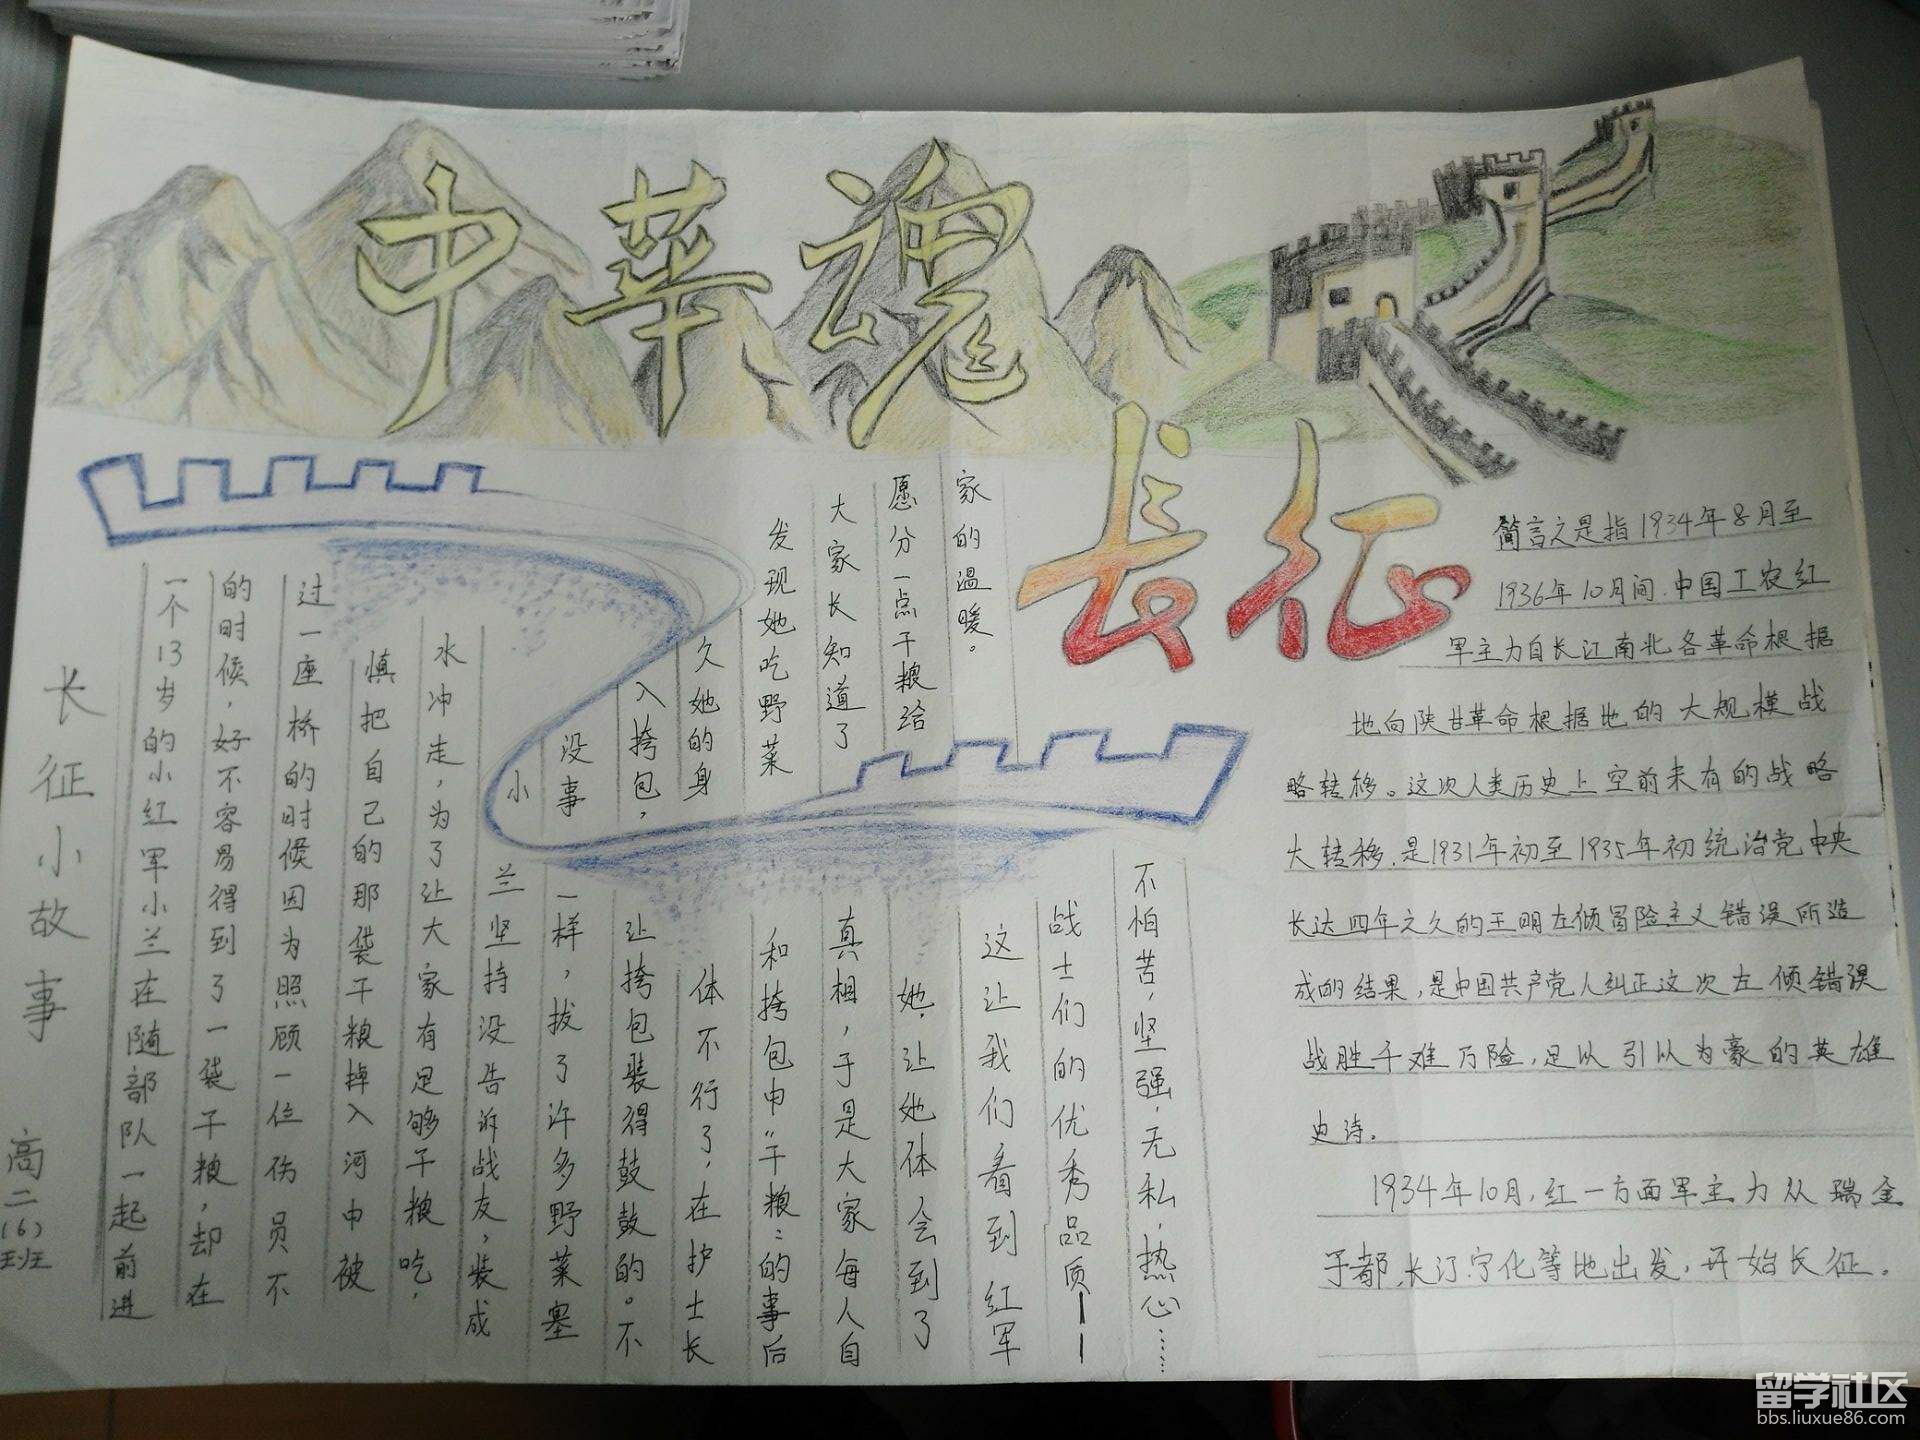 中华魂
长征
长征小故事
高二(6)班
一个13岁的小红军小兰在随部队一起前进
的时候,好不容易得到了一袋干粮,却在
过一座桥的时候因为照顾一位伤员不
慎把自己的那袋干粮掉入河中被
水冲走,为了让大家有足够干粮吃,
小兰坚持没告诉战友,装成
没事一样,拔了许多野菜塞
入挎包,让挎包装得鼓鼓的。不
久她的身体不行了,在护士长
发现她吃野菜和挎包中"干粮"的事后
大家长知道了真相,于是大家每人自
愿分一点干粮给她,让她体会到了
家的温暖。这让我们看到红军
战士们的优秀品质——
不怕苦,坚强,无私,热心……
简言之是指1934年8月至
1936年10月间.中国工农红
军主力自长江南北各革命根据
地向陕甘革命根据地的大规模战
略转移。这次人类历史上空前未有的战略
大转移,是1931年初至1935年初统治党中央
长达四年之久的王明左倾冒险主义错误所造
成的结果,是中国共产党人纠正这次左倾错误
战胜千难万险,足以引以为豪的英雄
史诗。
1934年10月,红一方面军主力从瑞金
于都,长汀,宁化等地出发,开始长征。
留学社区
bbs.liuxue86.com